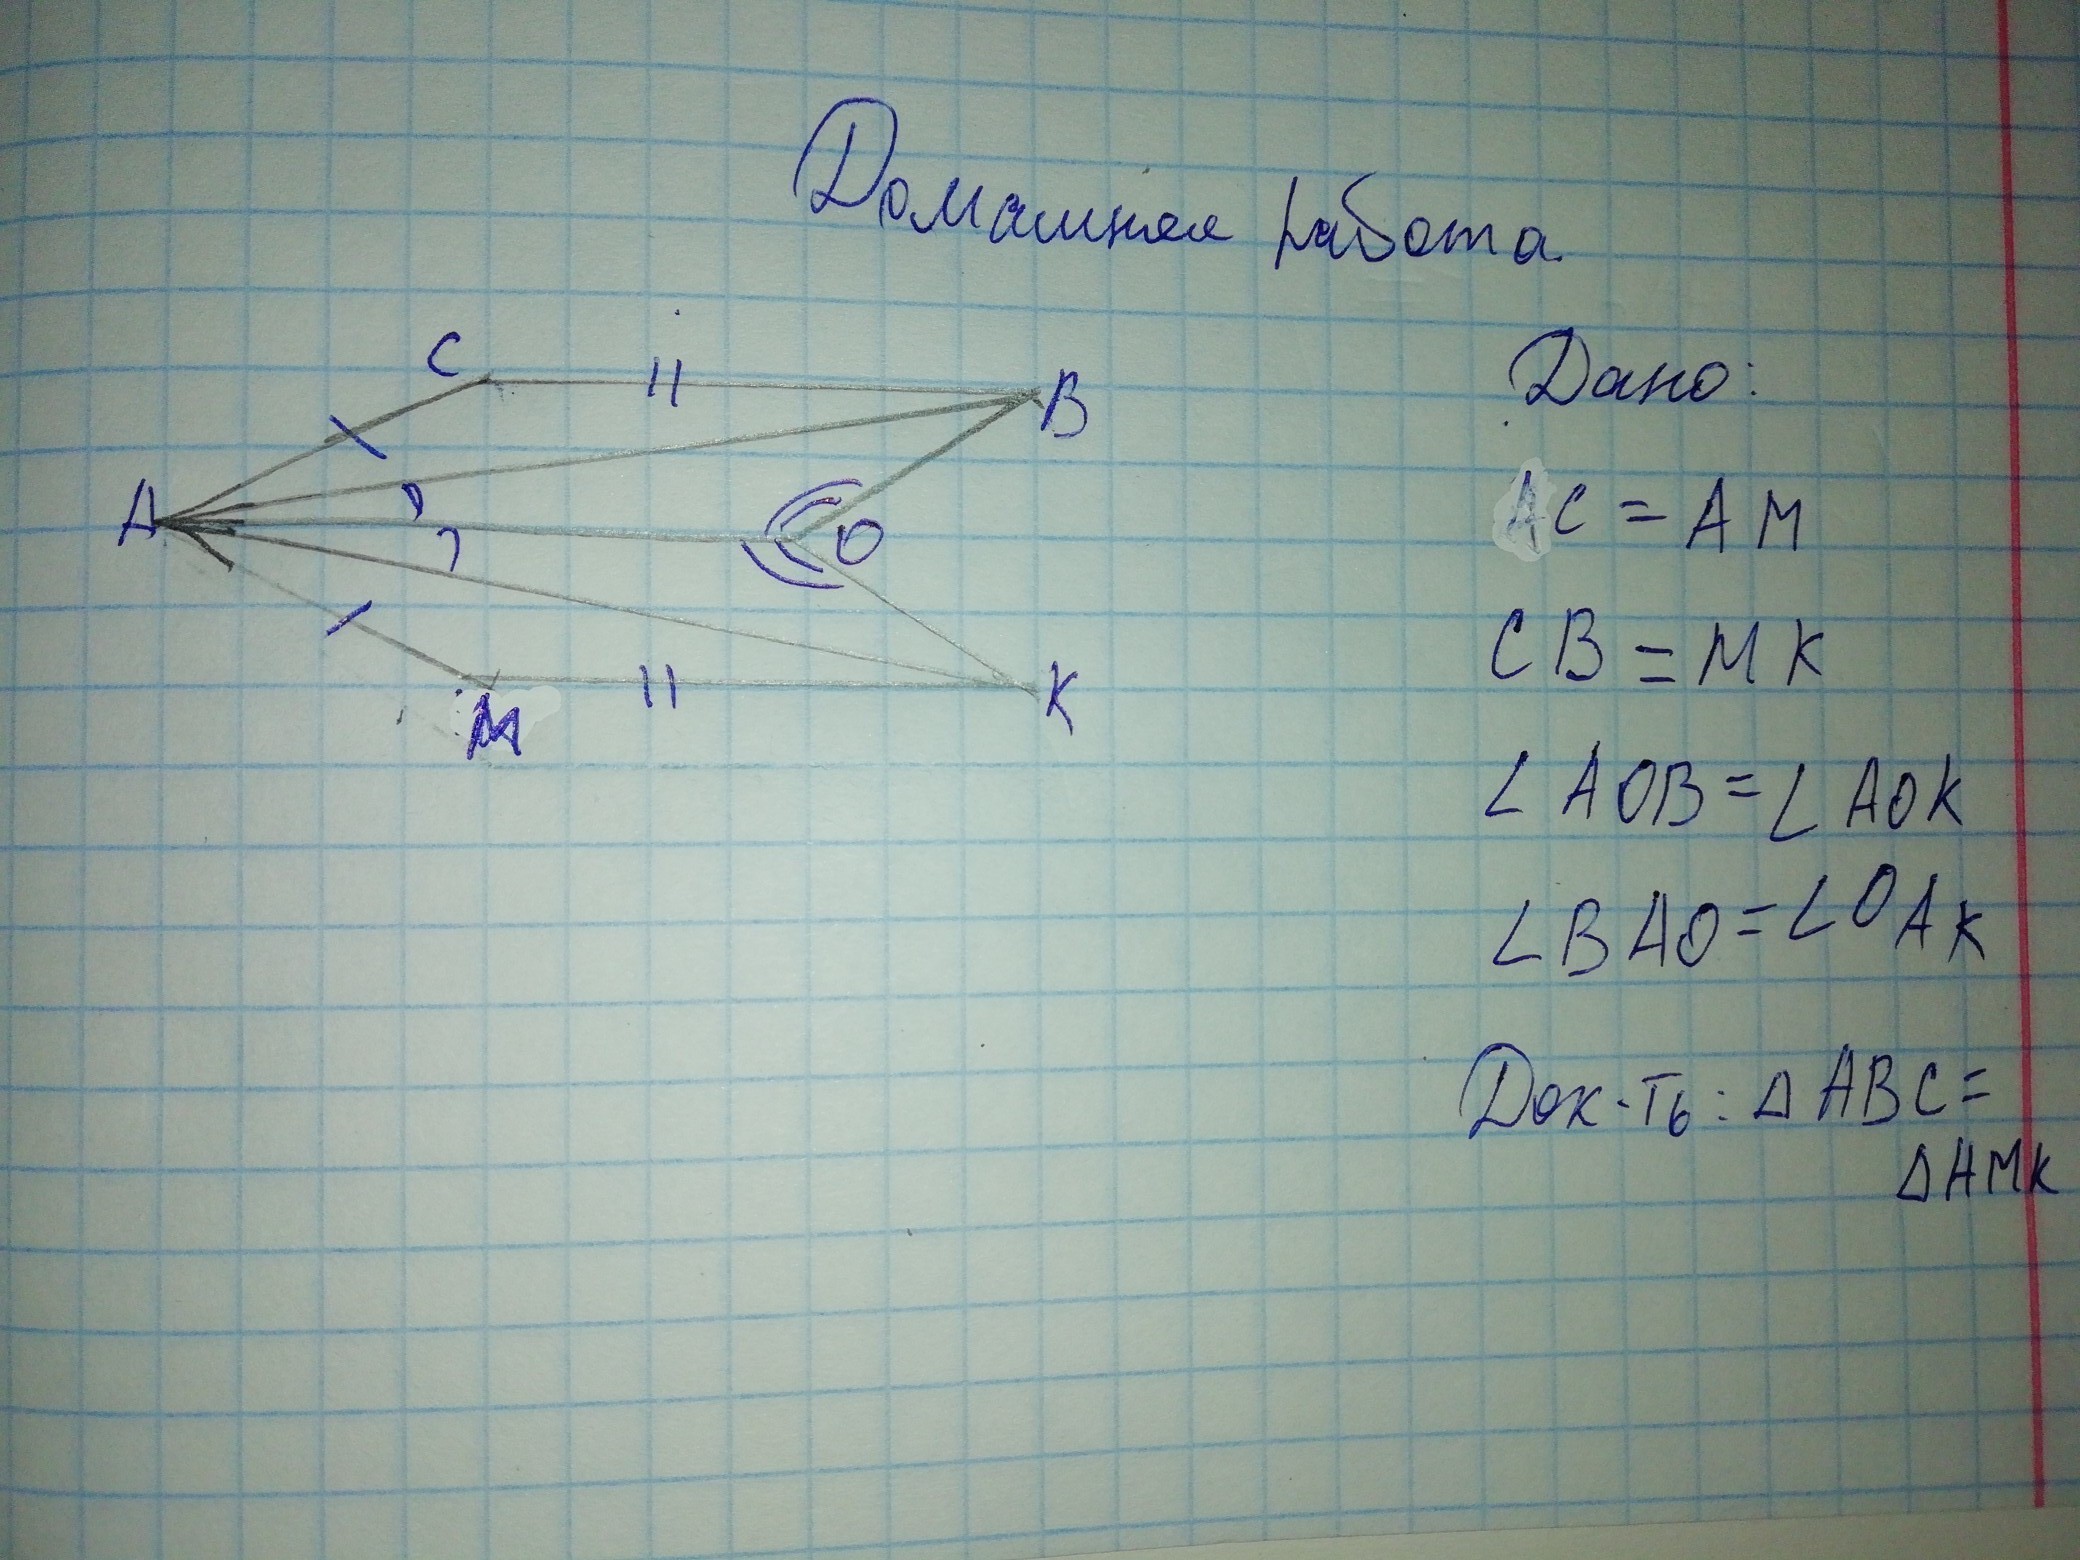 Домашняя работа.
C
B
A
O
M
K
Дано:
AC = AM
CB = MK
∠AOB = ∠AOK
∠BAO = ∠OAK
Док-ть: ΔABC =
ΔAMK